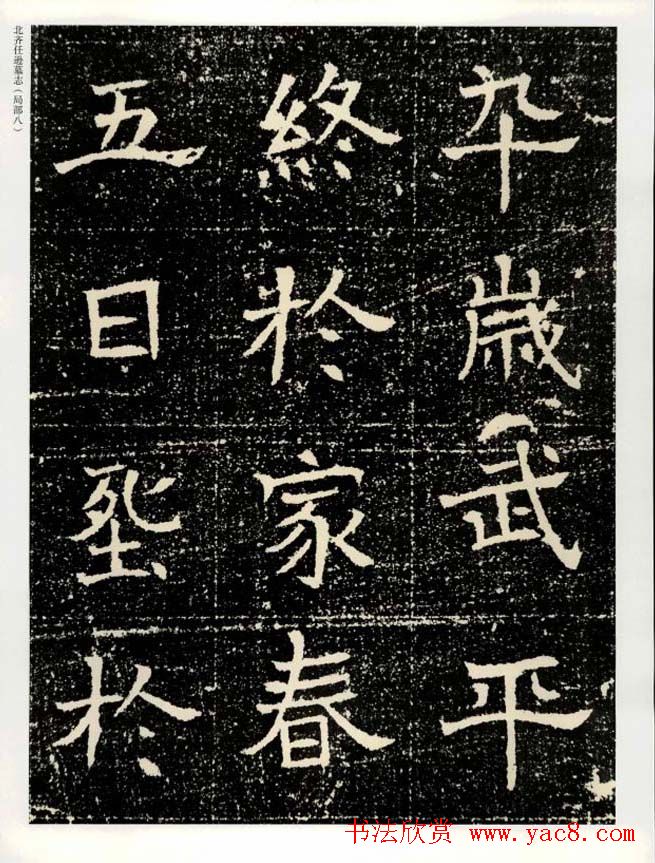 北齐任逊墓志（局部八）
卆嵗武平
終於家春
五日於
书法欣赏 www.yac8.com